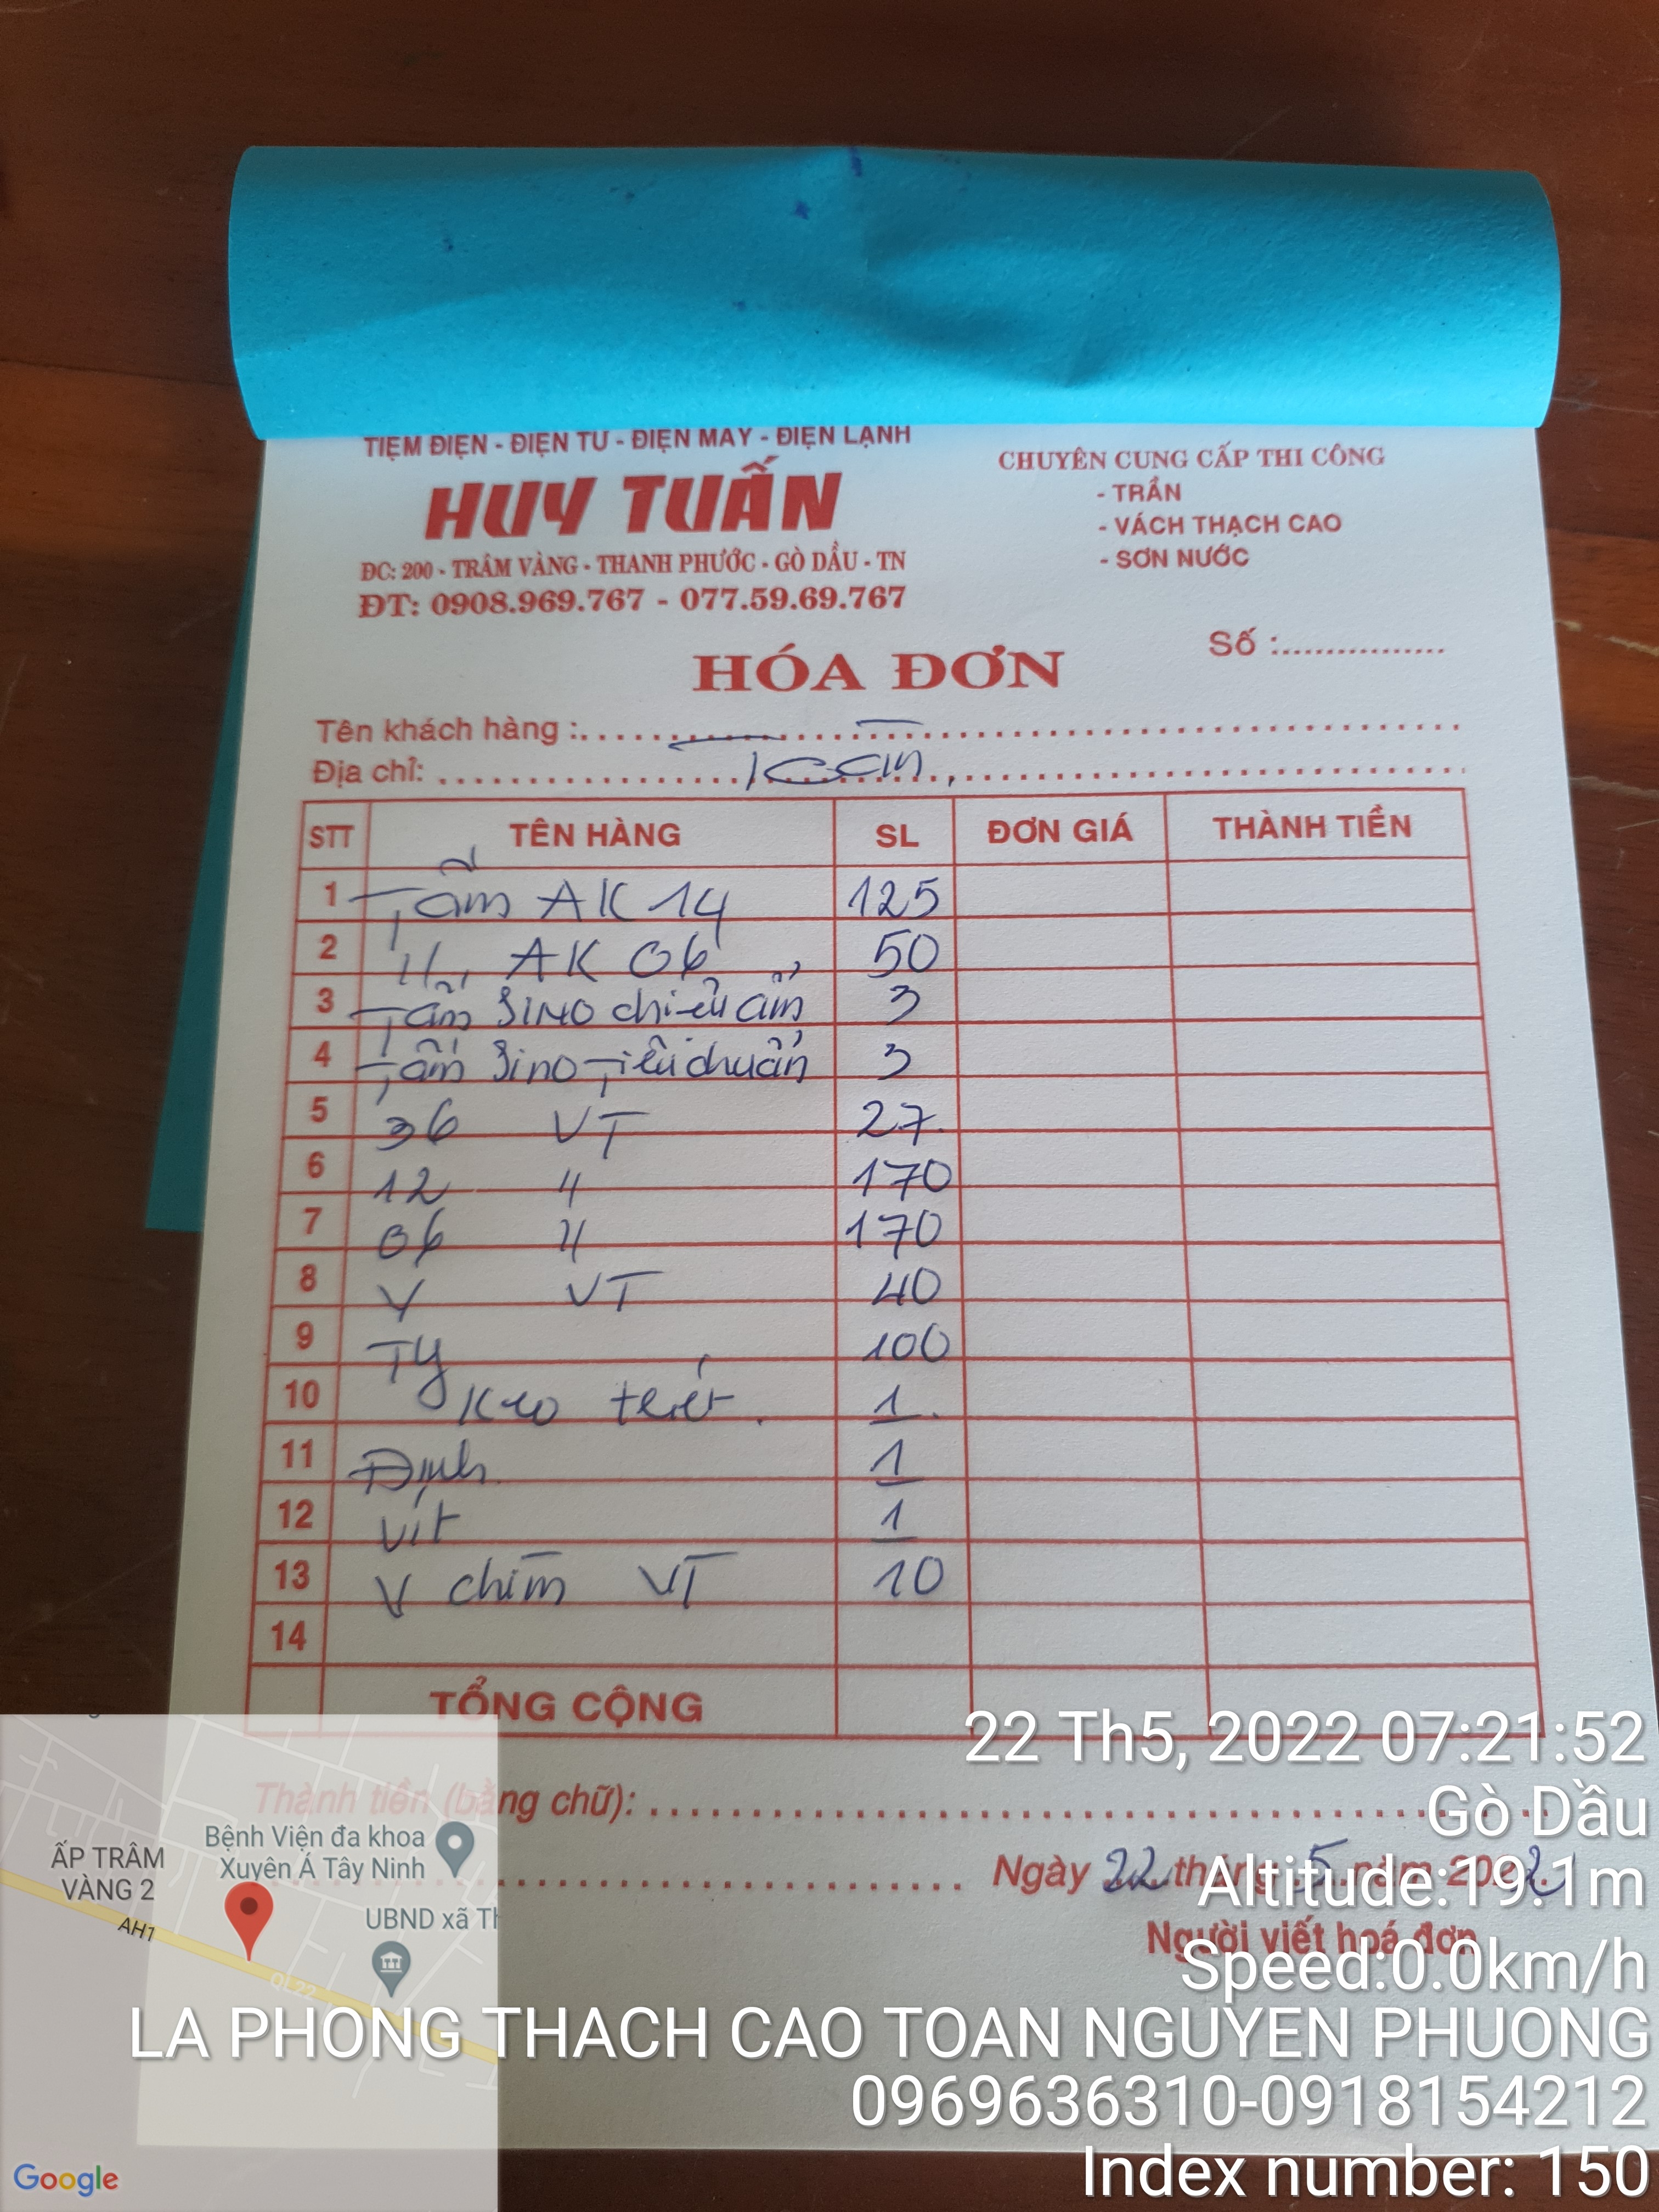 TIỆM ĐIỆN - ĐIỆN TỬ - ĐIỆN MÁY - ĐIỆN LẠNH
HUY TUẤN
ĐC: 200 - TRÂM VÀNG - THANH PHƯỚC - GÒ DẦU - TN
ĐT: 0908.969.767 - 077.59.69.767
CHUYÊN CUNG CẤP THI CÔNG
- TRẦN
- VÁCH THẠCH CAO
- SƠN NƯỚC
Số :
HÓA ĐƠN
Tên khách hàng :
Địa chỉ:
STT TÊN HÀNG SL ĐƠN GIÁ THÀNH TIỀN
1 Tấm AK 14 125
2 11 AK 06 50
3 Tấm SINO chiếu ẩm 3
4 Tấm Sino Tiêu chuẩn 3
5 36 VT 27
6 12 11 170
7 06 11 170
8 V VT 40
9 Ty 100
10 Keo 1
11 Đinh 1
12 Vít 1
13 V chìm VT 10
14
TỔNG CỘNG
Thành tiền (bằng chữ):
Ngày 22 tháng 5 năm 2022
Người viết hoá đơn
22 Th5, 2022 07:21:52
Gò Dầu
Altitude:19.1m
Speed:0.0km/h
LA PHONG THACH CAO TOAN NGUYEN PHUONG
0969636310-0918154212
Index number: 150
Bệnh Viện đa khoa
Xuyên Á Tây Ninh
ẤP TRÂM
VÀNG 2
AH1
UBND xã Th
QL22
Google